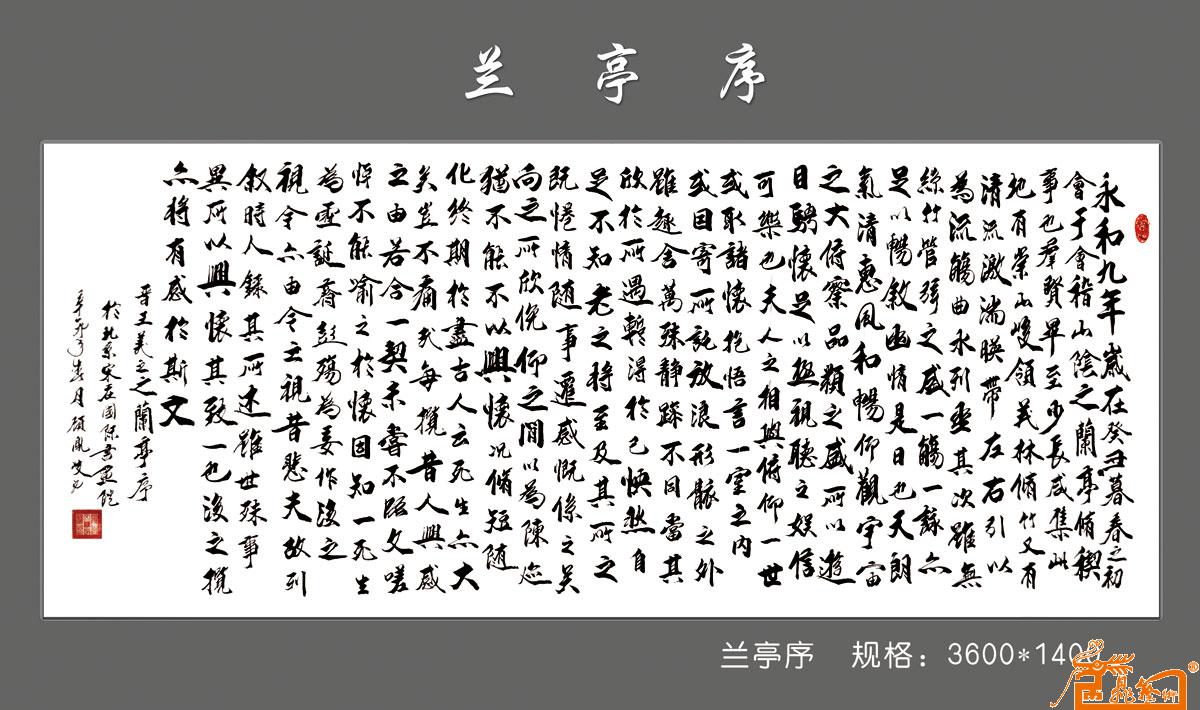 兰亭序
永和九年歲在癸丑暮春之初
會于會稽山陰之蘭亭脩禊
事也羣賢畢至少長咸集此
地有崇山峻領茂林脩竹又有
清流激湍暎帶左右引以
為流觴曲水列坐其次雖無
絲竹管弦之盛一觴一詠亦
足以暢敘幽情是日也天朗
氣清惠風和暢仰觀宇宙
之大俯察品類之盛所以遊
目騁懷足以極視聽之娛信
可樂也夫人之相與俯仰一世
或取諸懷抱悟言一室之內
或因寄所託放浪形骸之外
雖趣舍萬殊靜躁不同當其
欣於所遇暫得於己怏然自
足不知老之將至及其所之
既惓情随事遷感慨係之矣
向之所欣俛仰之間以為陳迹
猶不能不以興懷况脩短随
化終期於盡古人云死生亦大
矣豈不痛哉每攬昔人興感
之由若合一契未嘗不臨文嗟
悼不能喻之於懷固知一死生
為虛誕齊彭殤為妄作後之
視今亦由今之視昔悲夫故列
叙時人錄其所述雖世殊事
異所以興懷其致一也後之攬
亦將有感於斯文
晉王羲之之蘭亭序
於北京宋莊國際書畫院
辛卯年春月
兰亭序 规格：3600*140